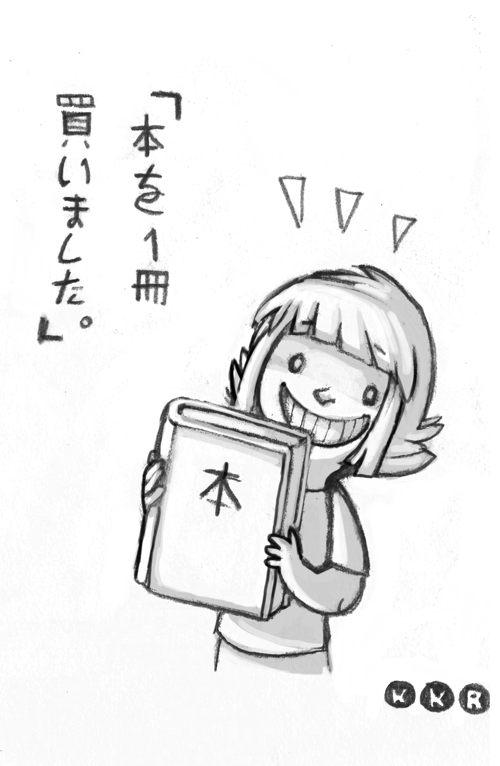 「本を1冊
買いました。」
本
KKR